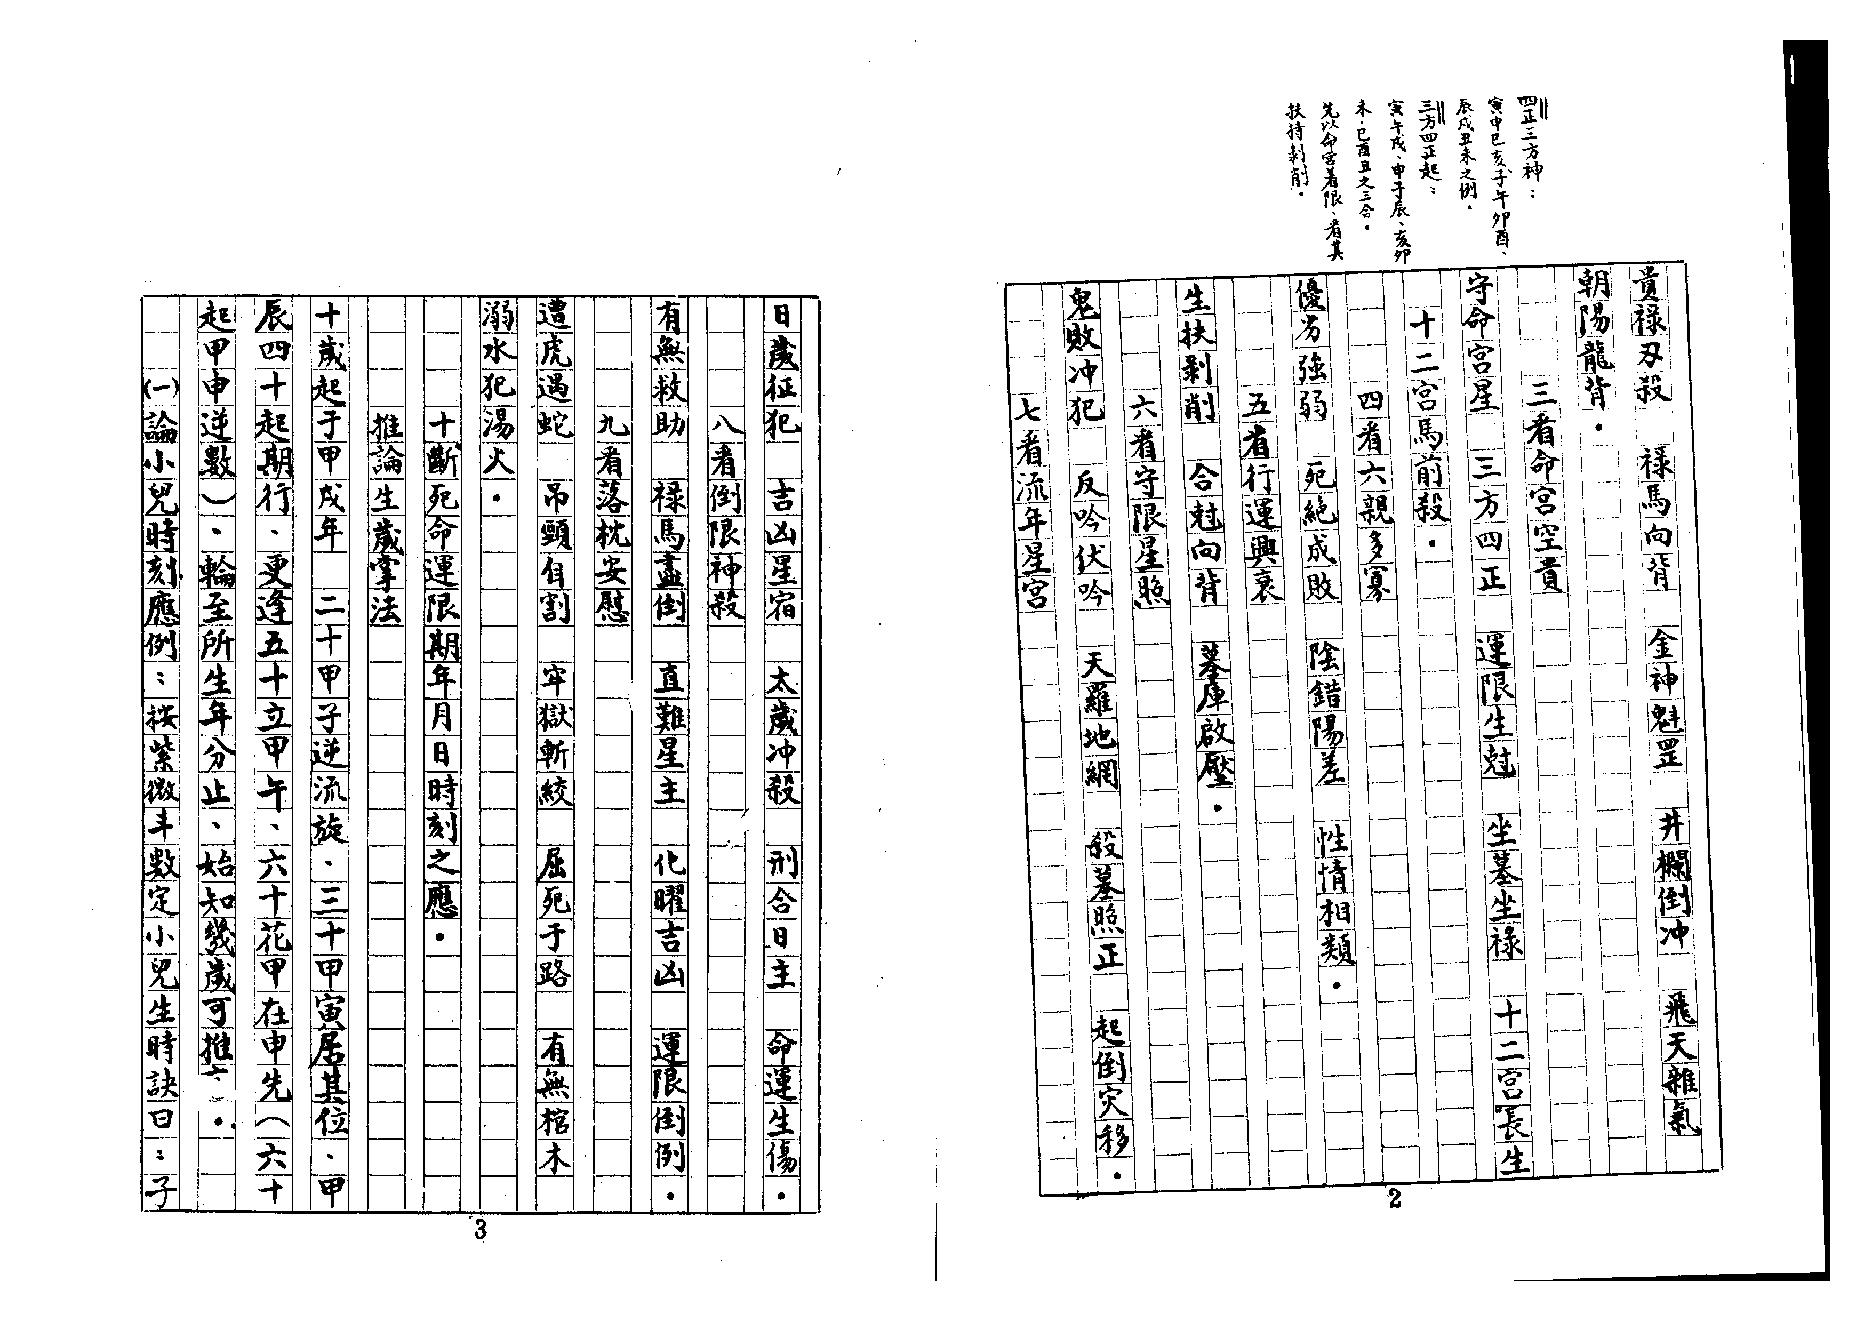 四正三方神：
寅申巳亥、子午卯酉、
辰戌丑未之例。
三方四正起：
寅午戌、申子辰、亥卯
未、巳酉丑之三合。
先以命宮着限、看其
扶持剥削。
貴禄刃殺　禄馬向背　金神魁罡　井欄倒冲　飛天雜氣
朝陽龍背。
三看命宮空貴
守命宮星　三方四正　運限生尅　坐墓坐禄　十二宮長生
十二宮馬前殺。
四看六親多寡
優劣強弱　死絶成敗　陰錯陽差　性情相類。
五看行運興衰
生扶剥削　合尅向背　墓庫啟壓。
六看守限星照
鬼敗冲犯　反吟伏吟　天羅地網　殺墓照正　起倒灾移。
七看流年星宮
2
日歲征犯　吉凶星宿　太歲冲殺　刑合日主　命運生傷。
八看倒限神殺
有無救助　禄馬盡倒　直難星主　化曜吉凶　運限倒例。
九看落枕安慰
遭虎遇蛇　吊頸自割　牢獄斬絞　屈死于路　有無棺木
溺水犯湯火。
十斷死命運限期年月日時刻之應。
推論生歲掌法
十歲起于甲戌年　二十甲子逆流旋、三十甲寅居其位、甲
辰四十起期行、更逢五十立甲午、六十花甲在申先（六十
起甲申逆數）、輪至所生年分止、始知幾歲可推亡。
㈠論小兒時刻應例：按紫微斗數定小兒生時訣曰：子
3